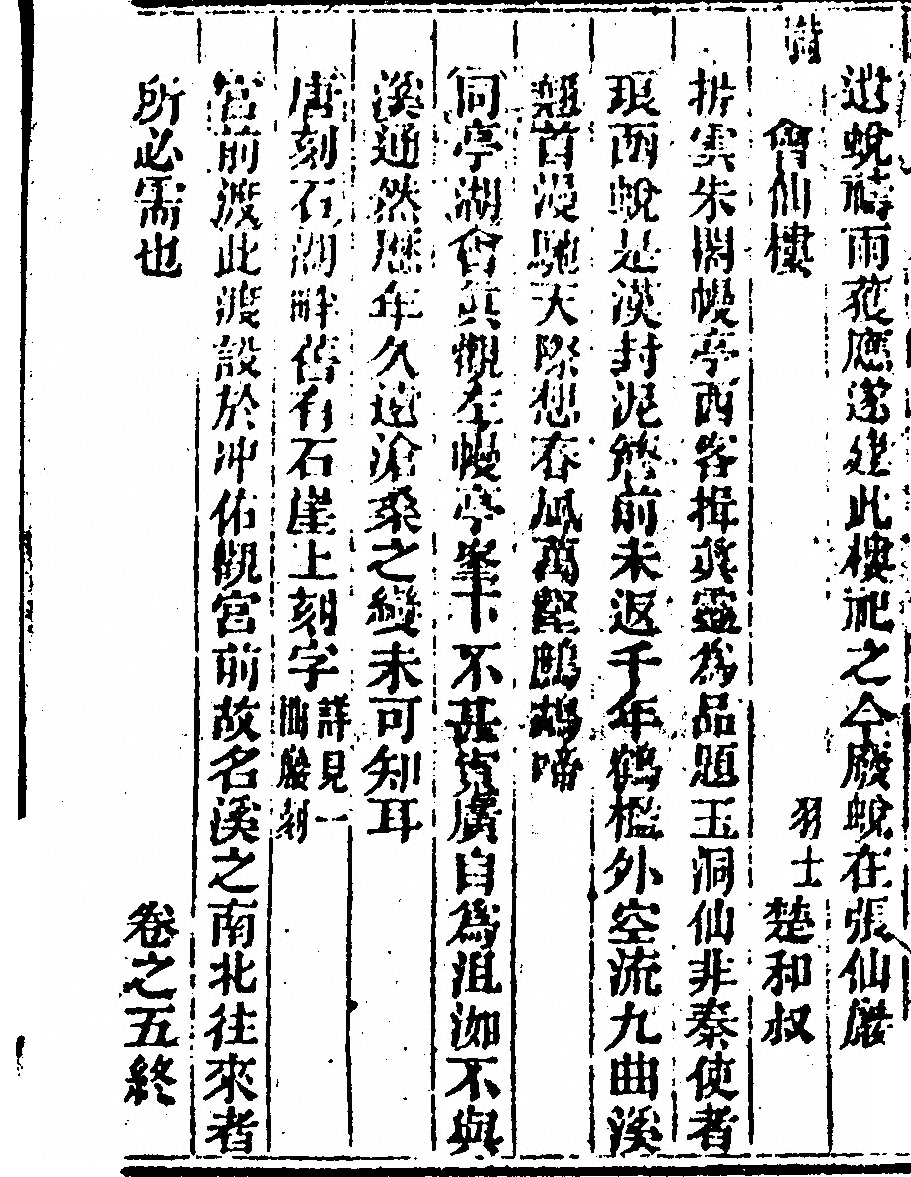 迯蛻禱雨獲應遂建此樓祀之今廢蛻在張仙巖
附
會仙樓
羽士楚和叔
拚雲朱閣幔亭西客揖真靈為品題玉洞仙非秦使者
琅函蛻是漢封泥簷前未返千年鶴檻外空流九曲溪
翹首漫馳天際想春風萬壑鷓鴣啼
同亭湖會真觀左幔亭峯下不甚寬廣自為沮洳不與
溪通然歷年久遠滄桑之變未可知耳
唐刻石湖畔舊有石崖上刻字詳見一曲巖刻
宮前渡此渡設於冲佑觀宮前故名溪之南北往來者
所必需也
卷之五終